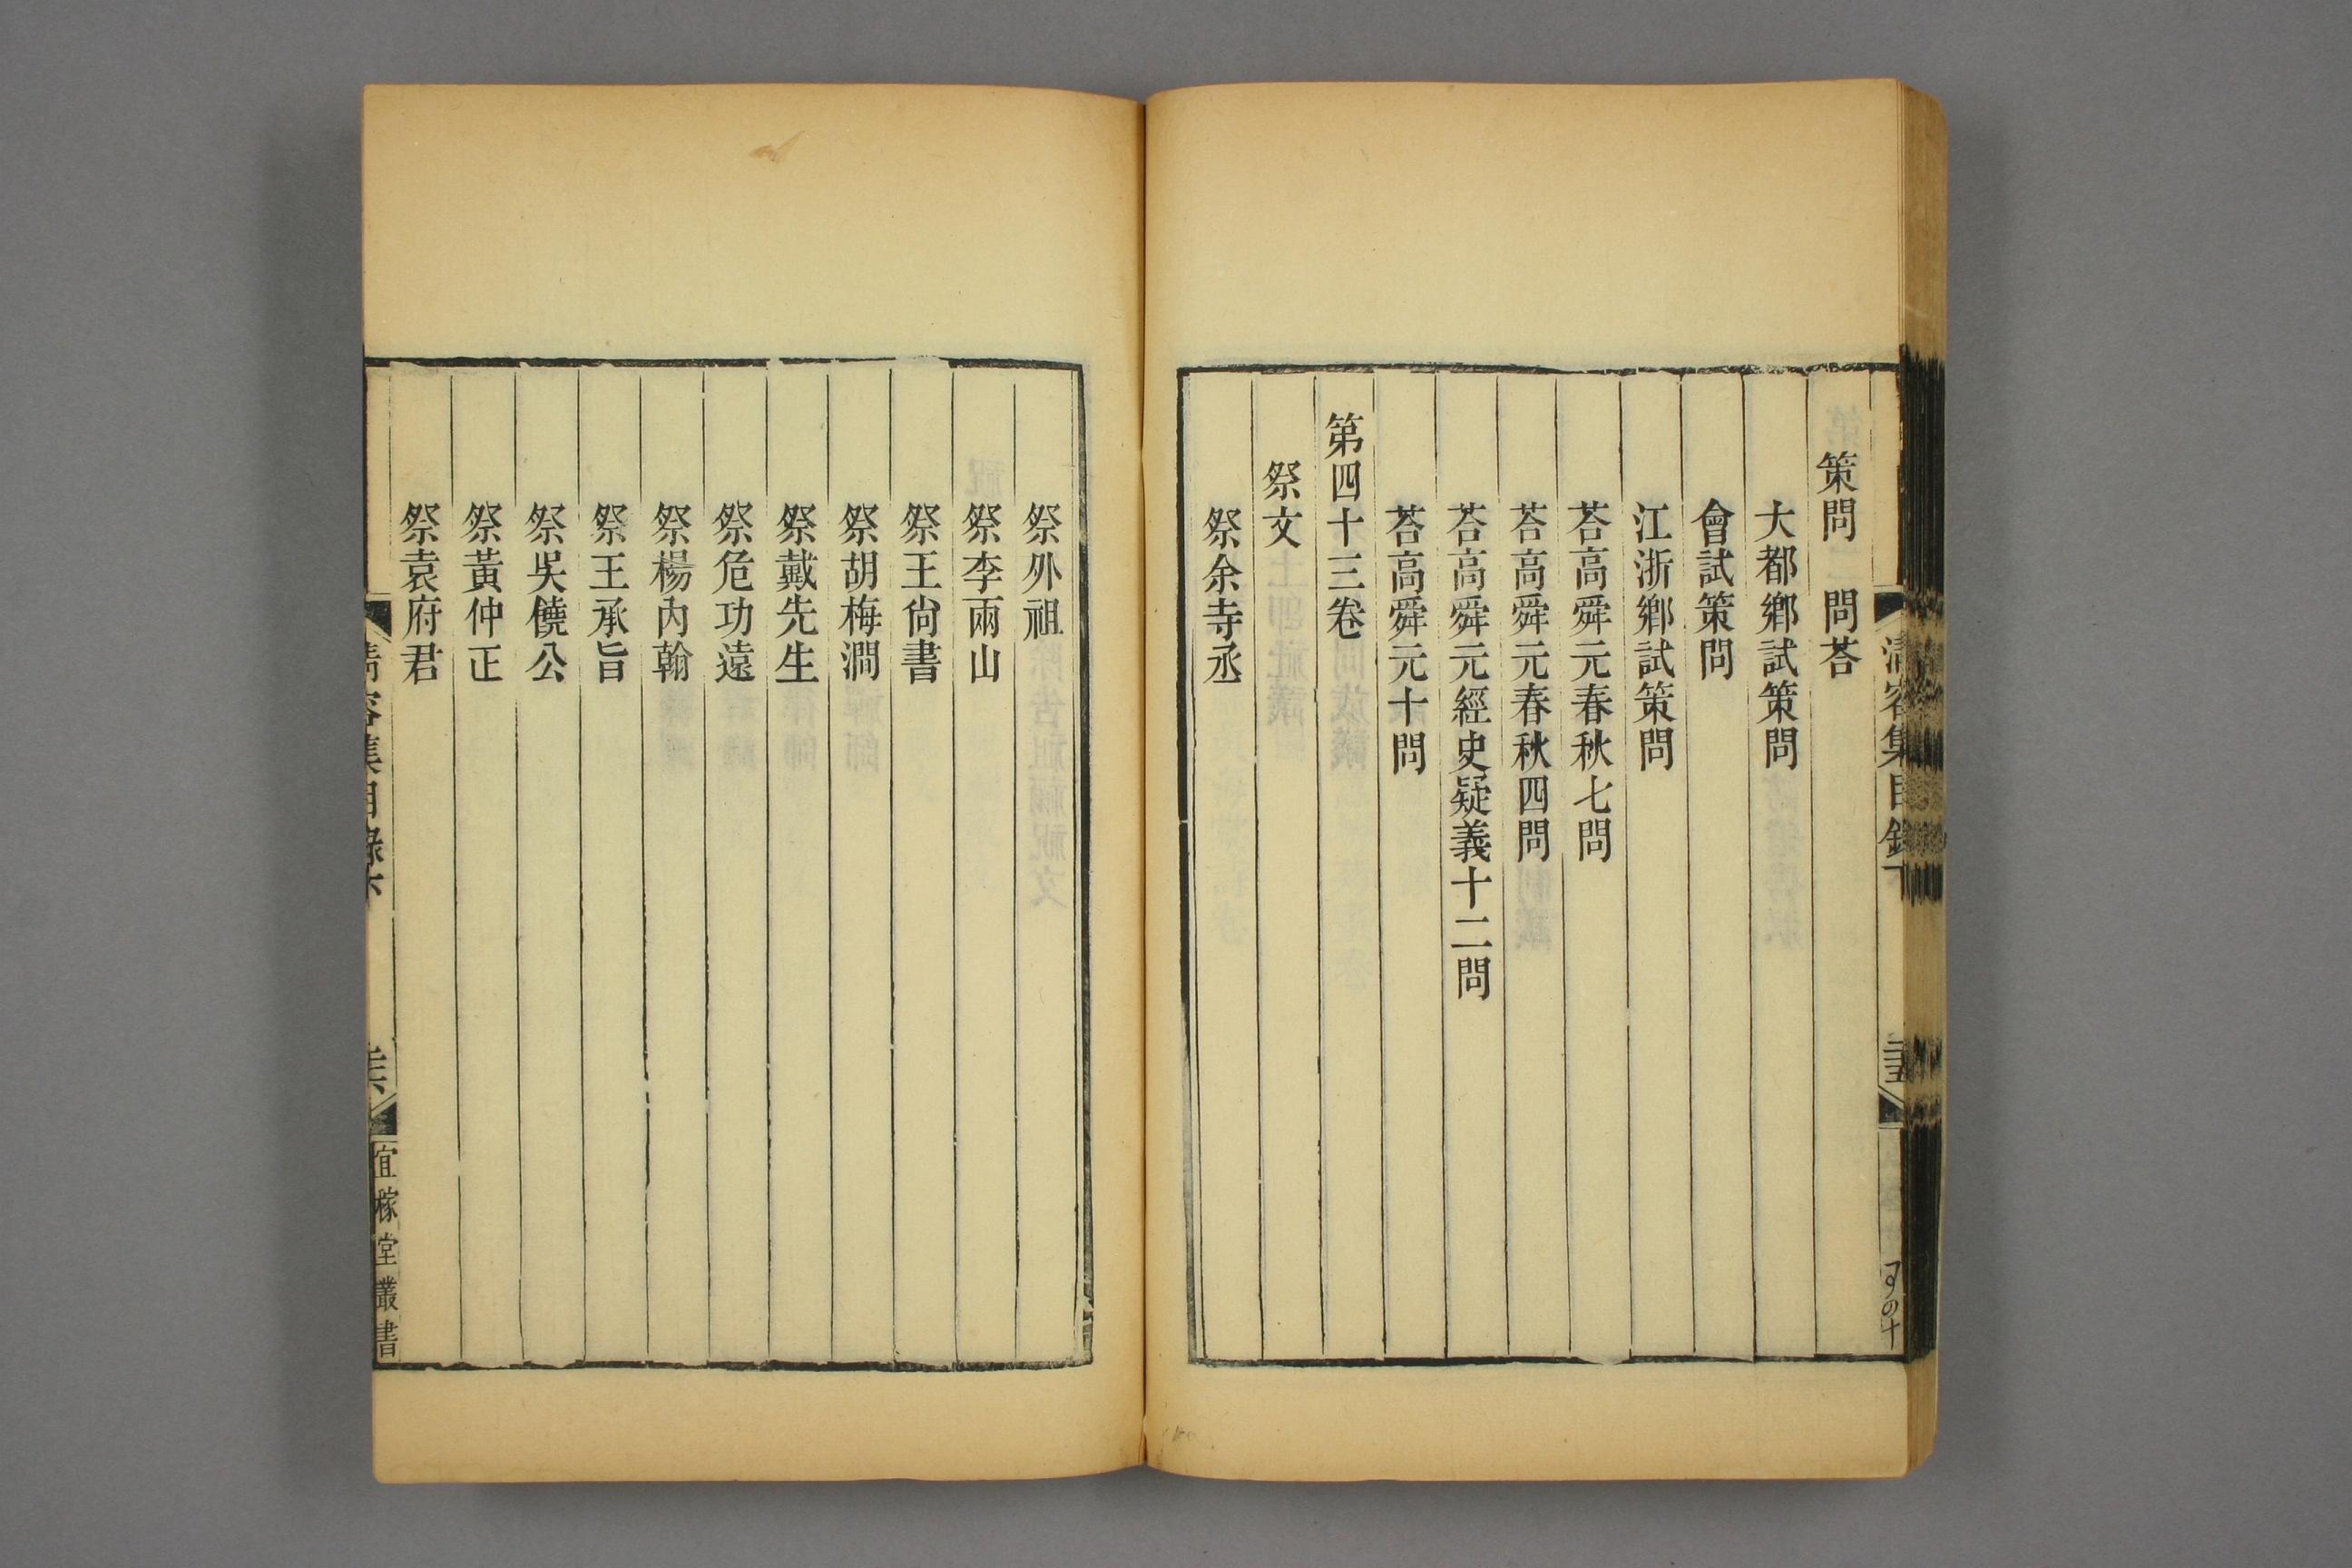 策問 問荅
大都鄉試策問
會試策問
江浙鄉試策問
荅高舜元春秋七問
荅高舜元春秋四問
荅高舜元經史疑義十二問
荅高舜元十問
第四十三卷
祭文
祭余寺丞
祭外祖
祭李兩山
祭王尙書
祭胡梅澗
祭戴先生
祭危功遠
祭楊內翰
祭王承旨
祭吳饒公
祭黃仲正
祭袁府君
清容集目錄下
宜稼堂叢書